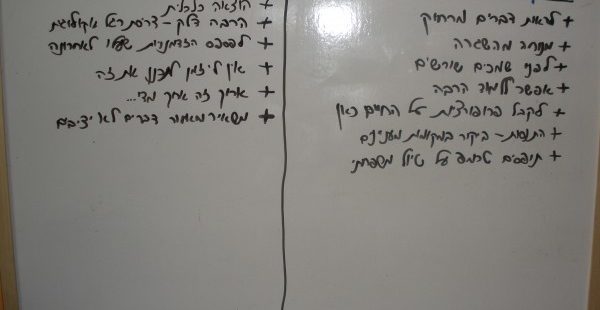 + לראות דברים מרחוק
+ מנוחה מהשגרה
+ לפני שמכים שורשים
+ אפשר ללמוד הרבה
+ לקבל פרופורציות על החיים כאן
+ התנסות - ביקור במקומות מעניינים
+ תופסים טרמפ על טיול משפחתי
+ הוצאה כלכלית
+ הרבה דלק - דריסת רגל אקולוגית
+ לפספס הזדמנויות לאחרונה
+ אין לי זמן לתכנן את זה
+ ארוך זה ארוך מדי...
+ משאיר מאחור דברים לא יציבים